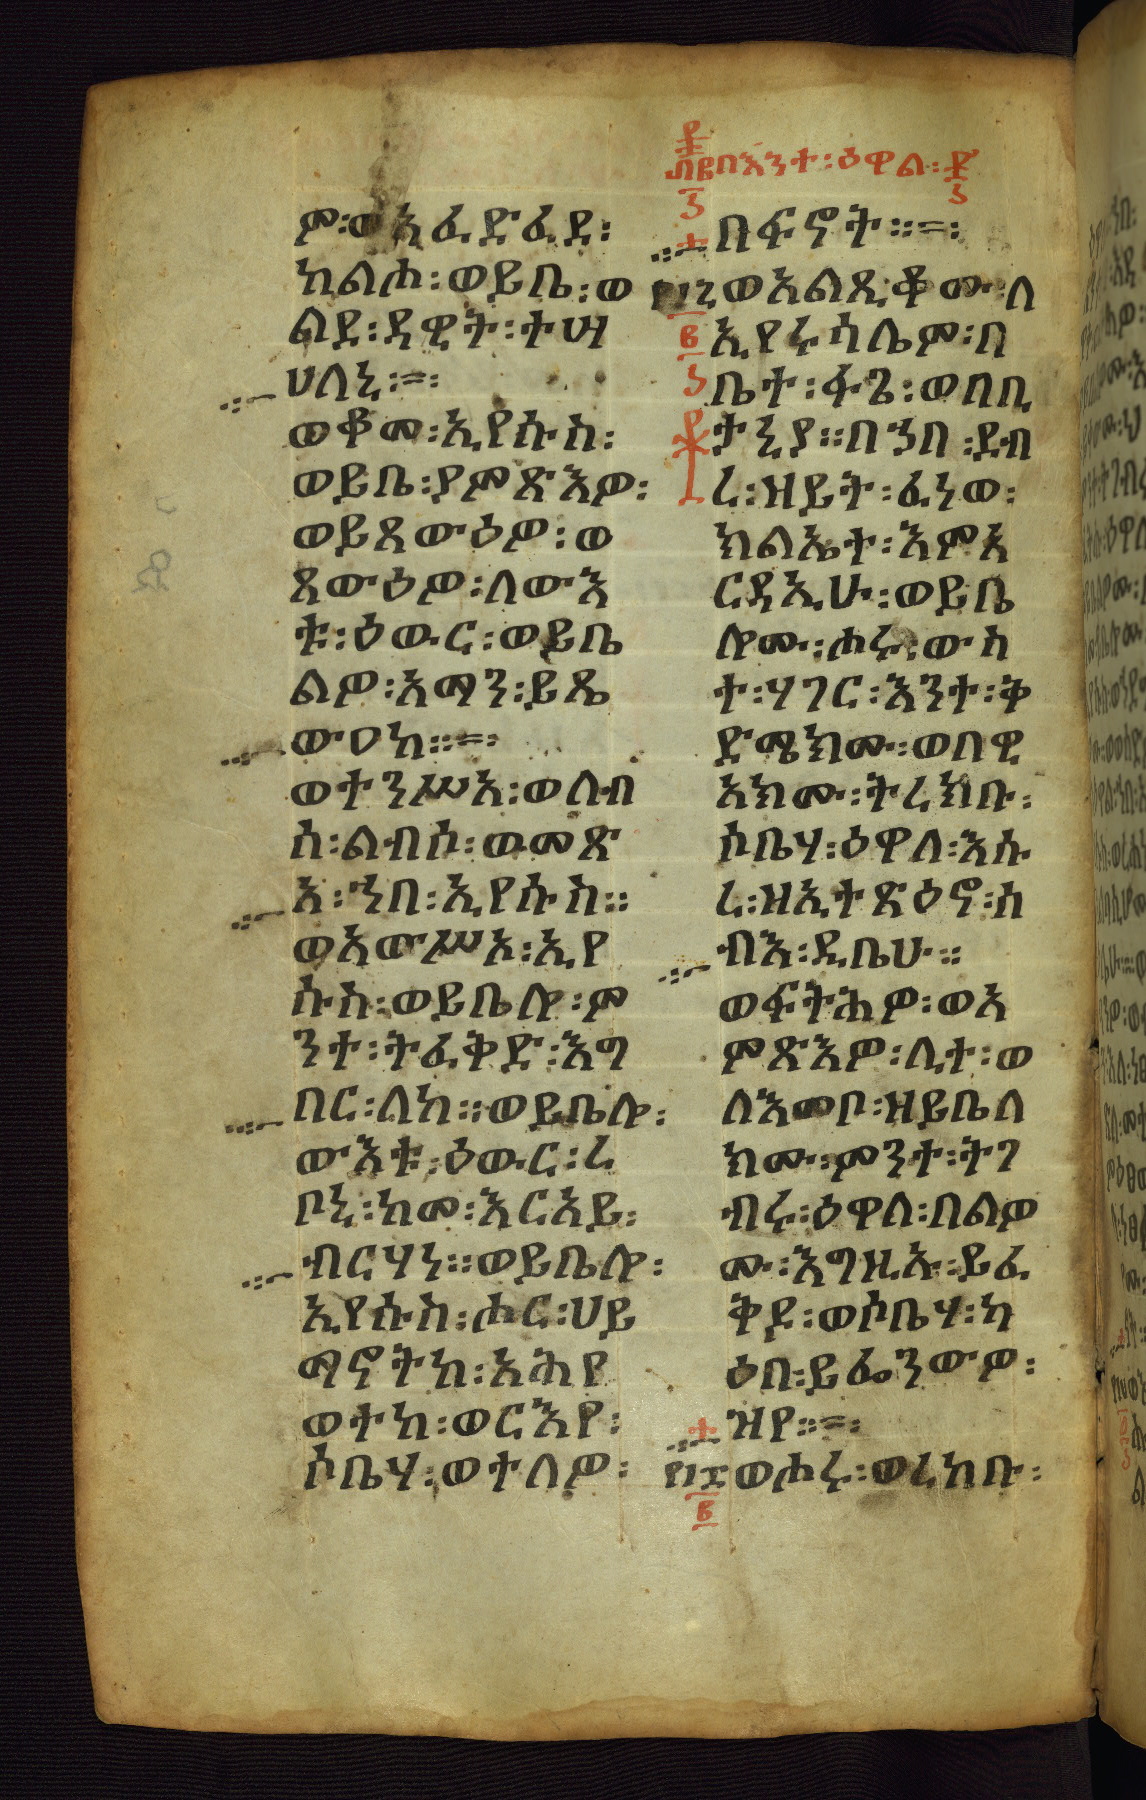 ም፡ወአፈድፈደ፡
ከልሐ፡ወይቤ፡ወ
ልደ፡ዳዊት፡ተሣ
ሀለኒ፡=፡
ወቆመ፡ኢየሱስ፡
ወይቤ፡ያምጽእዎ፡
ወይጸውዕዎ፡ወ
ጸውዕዎ፡ለውእ
ቱ፡ዕውር፡ወይቤ
ልዎ፡እማን፡ይጼ
ውዐከ።=፡
ወተንሥአ፡ወለብ
ሰ፡ልብሶ፡ወመጽ
አ፡ኀበ፡ኢየሱስ።
ወአውሥአ፡ኢየ
ሱስ፡ወይቤሎ፡ም
ንተ፡ትፈቅድ፡እግ
በር፡ለከ።ወይቤሎ፡
ውእቱ፡ዕውር፡ረ
ቦኒ፡ከመ፡እርአይ፡
ብርሃነ።ወይቤሎ፡
ኢየሱስ፡ሑር፡ሀይ
ማኖትከ፡አሕየ
ወተከ፡ወርእየ፡
ሶቤሃ፡ወተለዎ፡
በእንተ፡ዕዋል፡
በፍኖት።=፡
ወአልጺቆሙ፡ለ
ኢየሩሳሌም፡በ
ቤተ፡ፋጌ፡ወበቢ
ታንያ።በኀበ፡ደብ
ረ፡ዘይት፡ፈነወ፡
ክልኤተ፡እምአ
ርዳኢሁ፡ወይቤ
ሎሙ፡ሑሩ፡ውስ
ተ፡ሃገር፡እንተ፡ቅ
ድሜክሙ፡ወበዊ
አክሙ፡ትረክቡ፡
ሶቤሃ፡ዕዋለ፡እሱ
ረ፡ዘኢተጽዕኖ፡ሰ
ብእ፡ዲቤሁ።
ወፍትሕዎ፡ወአ
ምጽእዎ፡ሊተ፡ወ
ለእመቦ፡ዘይቤለ
ክሙ፡ምንተ፡ትገ
ብሩ፡ዕዋለ፡በልዎ
ሙ፡እግዚኡ፡ይፈ
ቅደ፡ወሶቤሃ፡ካ
ዕበ፡ይፌንውዎ፡
ዝየ።=፡
ወሑሩ፡ወረከቡ፡